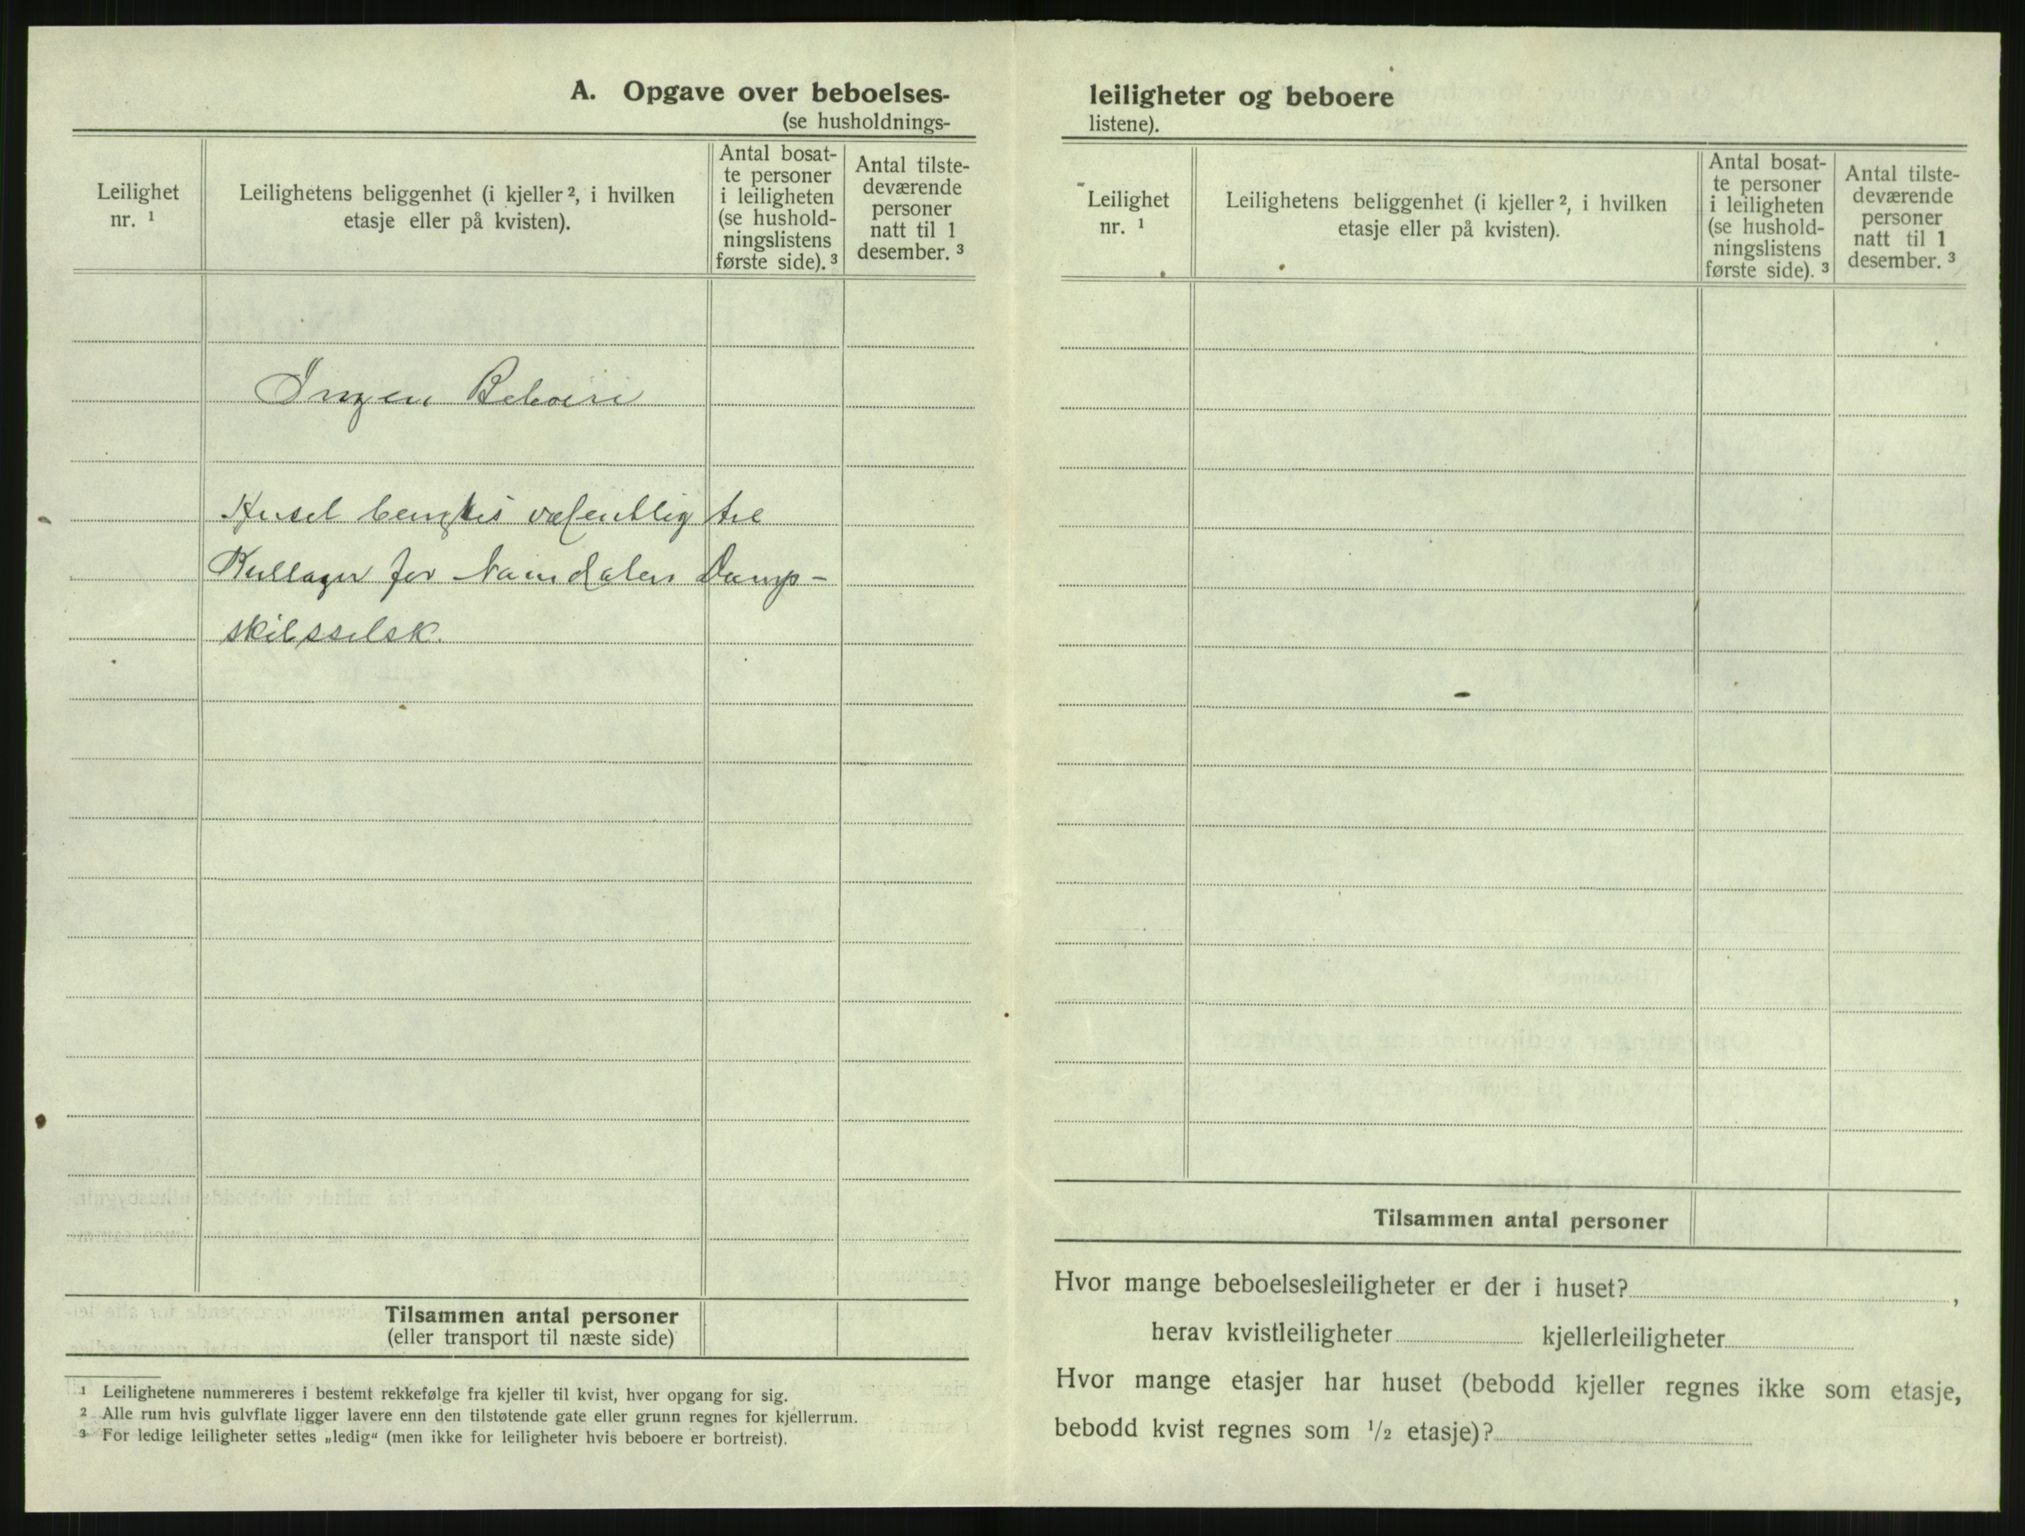 A. Opgave over beboelses-
(se husholdnings-
Leilighet
nr. ¹
Leilighetens beliggenhet (i kjeller ², i hvilken
etasje eller på kvisten).
Antal bosat-
te personer
i leiligheten
(se hushold-
ningslistens
første side). ³
Antal tilste-
deværende
personer
natt til 1
desember. ³
Ingen Beboere
Huset benyttes væsentlig til
Kullager for Namdalens Damp-
skibsselsk.
Tilsammen antal personer
(eller transport til næste side)
¹ Leilighetene nummereres i bestemt rekkefølge fra kjeller til kvist, hver opgang for sig.
² Alle rum hvis gulvflate ligger lavere enn den tilstøtende gate eller grunn regnes for kjellerrum.
³ For ledige leiligheter settes „ledig“ (men ikke for leiligheter hvis beboere er bortreist).
leiligheter og beboere
listene).
Leilighet
nr. ¹
Leilighetens beliggenhet (i kjeller ², i hvilken
etasje eller på kvisten).
Antal bosat-
te personer
i leiligheten
(se hushold-
ningslistens
første side). ³
Antal tilste-
deværende
personer
natt til 1
desember. ³
Tilsammen antal personer
Hvor mange beboelsesleiligheter er der i huset? ,
herav kvistleiligheter kjellerleiligheter
Hvor mange etasjer har huset (bebodd kjeller regnes ikke som etasje,
bebodd kvist regnes som ½ etasje)?